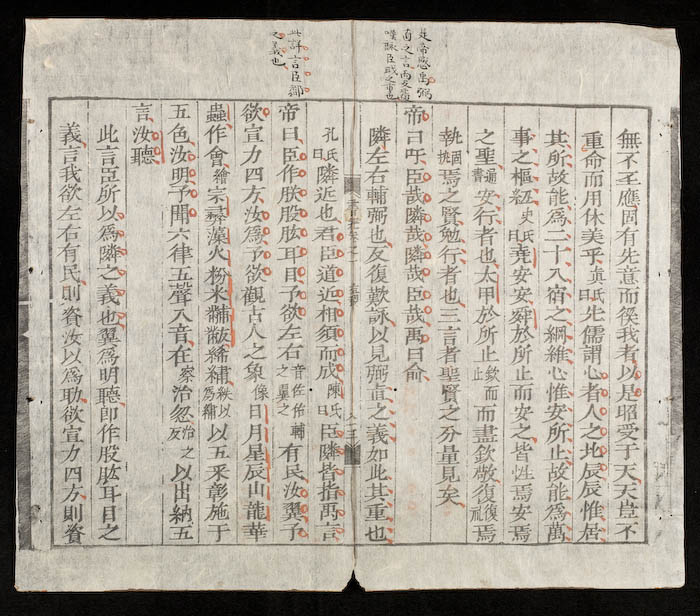 無不丕應固有先意而徯我者以是昭受于天天豈不
重命而用休美乎真氏曰先儒謂心者人之北辰辰惟居
其所故能為二十八宿之綱維心惟安所止故能為萬
事之樞紐史氏曰堯安安舜於所止而安之皆性焉安焉
之聖安行者也太甲於所止欽而止而盡欽敬復復焉
執焉之賢勉行者也三言者聖賢之分量見矣
帝曰吁臣哉隣哉隣哉臣哉禹曰俞
隣左右輔弼也反復歎詠以見弼直之義如此其重也
孔氏曰隣近也君臣道近相須而成陳氏曰臣隣皆指禹言
帝曰臣作朕股肱耳目予欲左右音佐佑輔翼之有民汝翼予
欲宣力四方汝為予欲觀古人之象像日月星辰山龍華
蟲作會繪宗彛藻火粉米黼黻絺繡以五采彰施于
五色汝明予聞六律五聲八音在察治忽以出納五
言汝聽
此言臣所以為隣之義也翼為明聽即作股肱耳目之
義言我欲左右有民則資汝以為助欲宣力四方則資
此詳言臣鄰
之義也